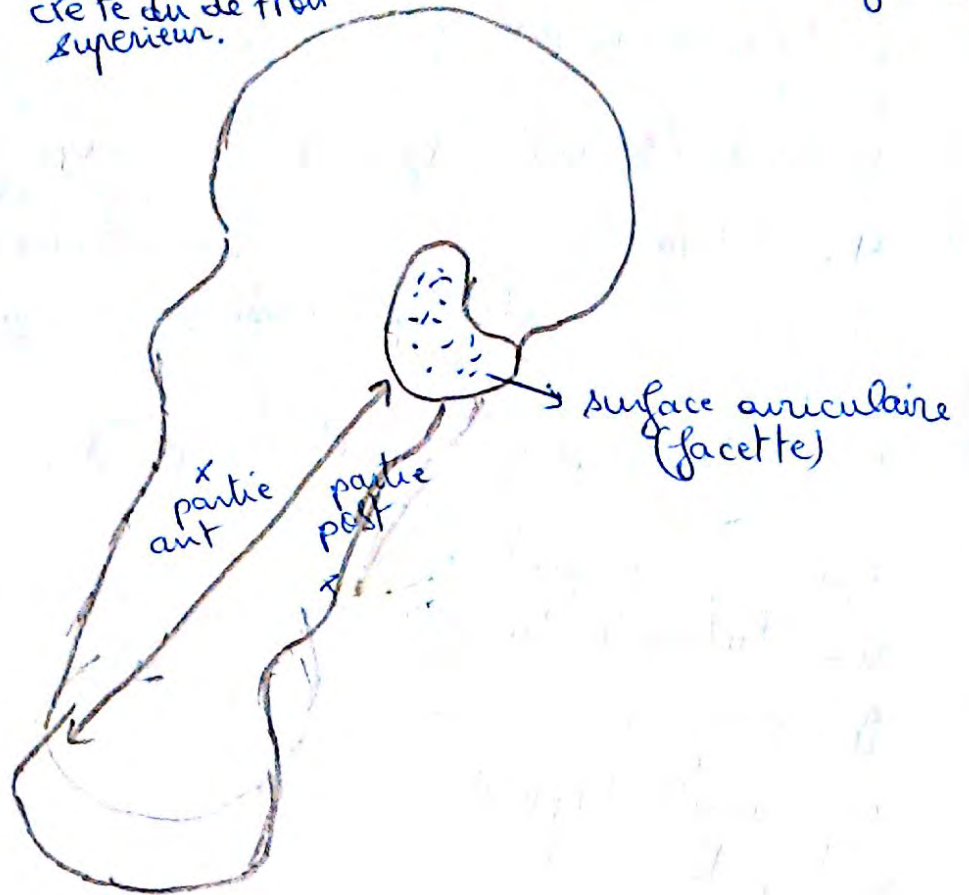 crête du détroit
supérieur.
surface auriculaire
(facette)
x
partie
ant
partie
post
x